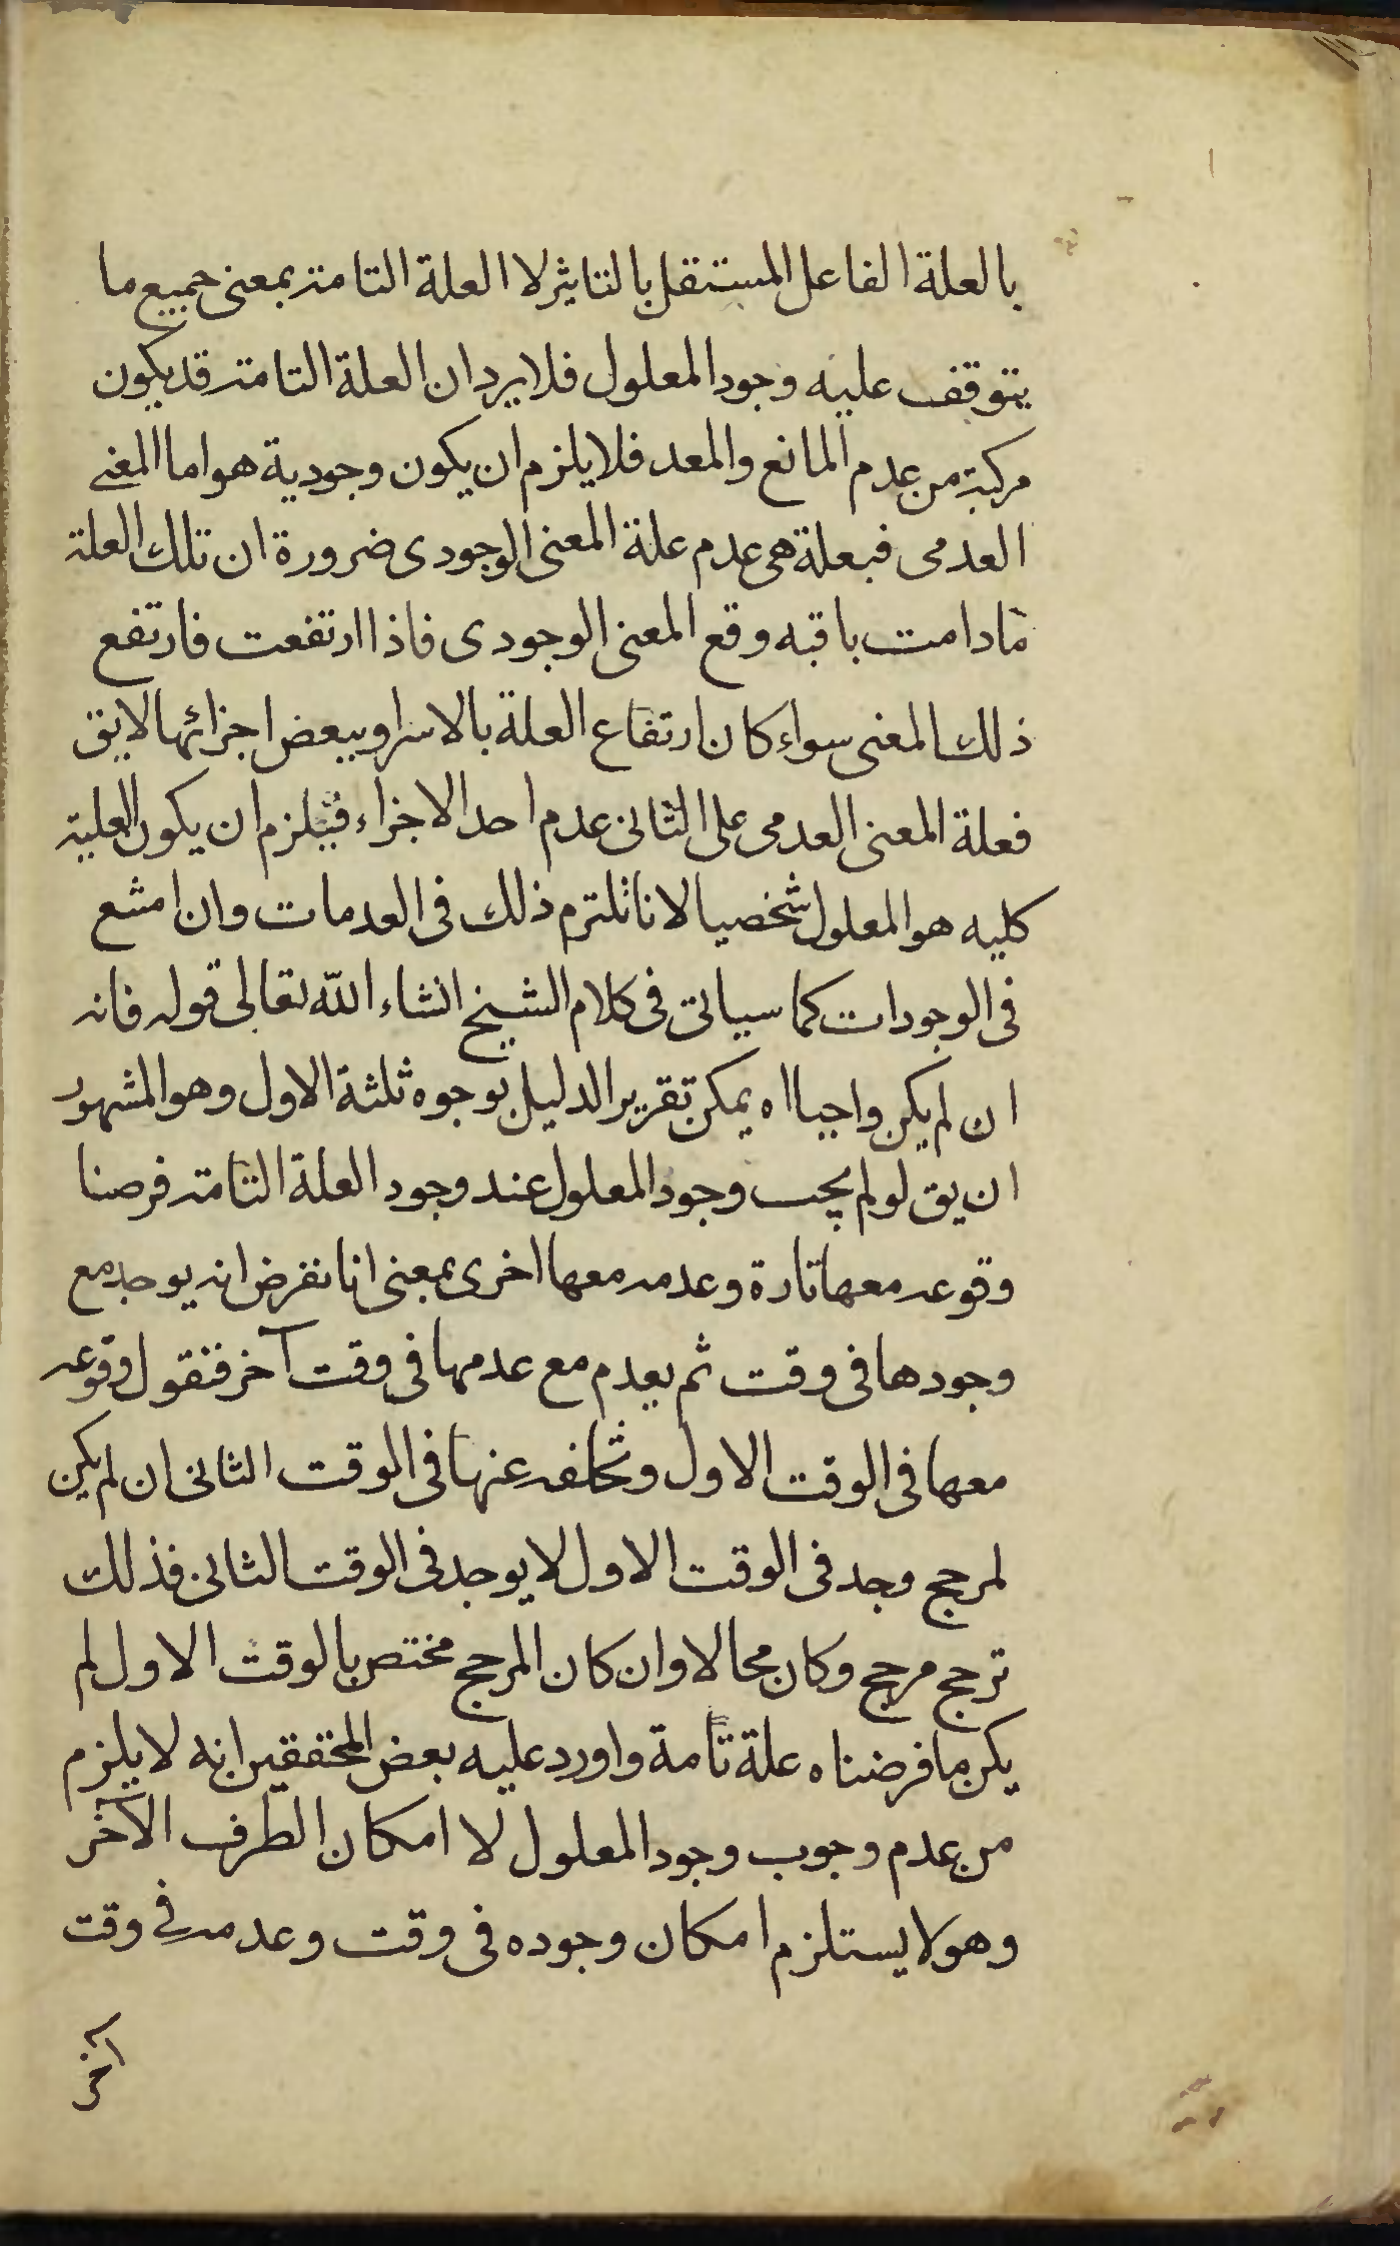 بالعلة الفاعل المستقل بالتاثير لا العلة التامة بمعنى جميع ما
يتوقف عليه وجود المعلول فلا يرد ان العلة التامة قد يكون
مركبة من عدم المانع والمعد فلا يلزم ان يكون وجودية هو اما المعنى
العدمى فبعلة هى عدم علة المعنى الوجودى ضرورة ان تلك العلة
مادامت باقيه وقع المعنى الوجودى فاذا ارتفعت فارتفع
ذلك المعنى سواء كان ارتفاع العلة بالاسر او ببعض اجزائها لا يق
فعلة المعنى العدمى على الثانى عدم احد الاجزاء فيلزم ان يكون العلية
كليه هو المعلول شخصيا لانا نلتزم ذلك فى العدمات وان امتنع
فى الوجودات كما سياتى فى كلام الشيخ انشاء الله تعالى قوله فانه
ان لم يكن واجبا اه يمكن تقرير الدليل بوجوه ثلثة الاول وهو المشهور
ان يق لو لم يجب وجود المعلول عند وجود العلة التامة فرضنا
وقوعه معها تارة وعدمه معها اخرى بمعنى انا نفرض انه يوجد مع
وجودها فى وقت ثم يعدم مع عدمها فى وقت آخر فنقول وقوعه
معها فى الوقت الاول وتخلفه عنها فى الوقت الثانى ان لم يكن
لمرجح وجد فى الوقت الاول لا يوجد فى الوقت الثانى فذلك
ترجح مرجح وكان محالا وان كان المرجح مختص بالوقت الاول لم
يكن ما فرضناه علة تامة واورد عليه بعض المحققين انه لا يلزم
من عدم وجوب وجود المعلول لا امكان الطرف الآخر
وهو لا يستلزم امكان وجوده فى وقت وعدمه فى وقت
آخر